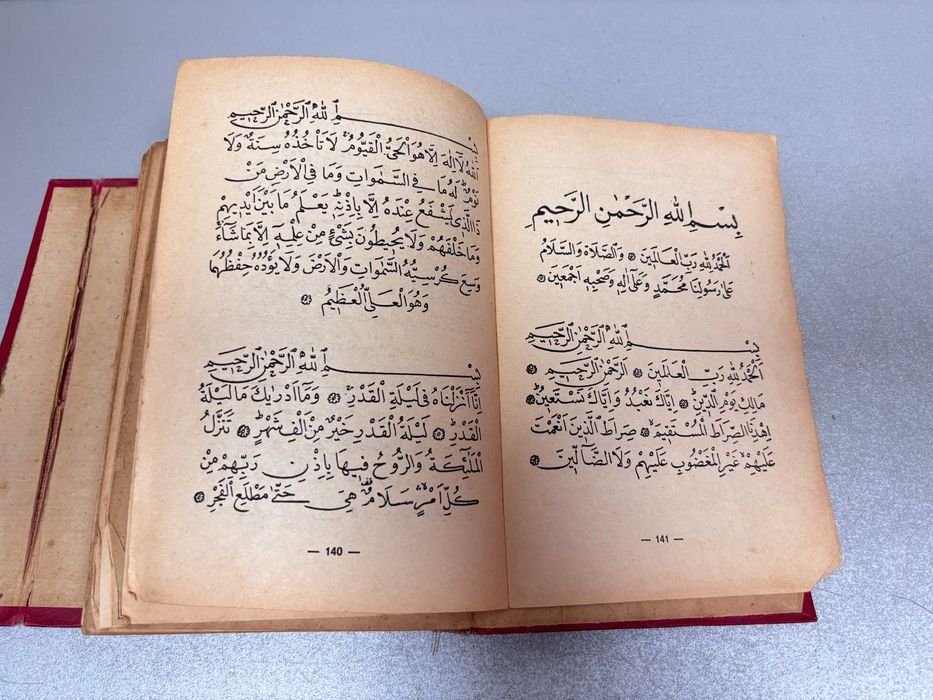 بِسْمِ اللهِ الرَّحْمٰنِ الرَّحِيمِ
اَللهُ لَا اِلٰهَ اِلَّا هُوَ اَلْحَىُّ الْقَيُّومُ ۚ لَا تَأْخُذُهُ سِنَةٌ وَلَا
نَوْمٌ ؕ لَهُ مَا فِى السَّمٰوَاتِ وَمَا فِى الْاَرْضِ مَنْ
ذَا الَّذِى يَشْفَعُ عِنْدَهُ اِلَّا بِاِذْنِهِ ؕ يَعْلَمُ مَا بَيْنَ اَيْدِيهِمْ
وَمَا خَلْفَهُمْ وَلَا يُحِيطُونَ بِشَىْءٍ مِنْ عِلْمِهِ اِلَّا بِمَا شَاءَ
وَسِعَ كُرْسِيُّهُ السَّمٰوَاتِ وَالْاَرْضَ وَلَا يَؤُدُهُ حِفْظُهُمَا
وَهُوَ الْعَلِىُّ الْعَظِيمُ ۞
بِسْمِ اللهِ الرَّحْمٰنِ الرَّحِيمِ
اِنَّا اَنْزَلْنَاهُ فِى لَيْلَةِ الْقَدْرِ ۞ وَمَا اَدْرٰيكَ مَا لَيْلَةُ
الْقَدْرِ ۞ لَيْلَةُ الْقَدْرِ خَيْرٌ مِنْ اَلْفِ شَهْرٍ ۞ تَنَزَّلُ
الْمَلٰئِكَةُ وَالرُّوحُ فِيهَا بِاِذْنِ رَبِّهِمْ مِنْ
كُلِّ اَمْرٍ ۞ سَلَامٌ هِىَ حَتّٰى مَطْلَعِ الْفَجْرِ ۞
— 140 —
بِسْمِ اللهِ الرَّحْمٰنِ الرَّحِيمِ
اَلْحَمْدُ لِلّٰهِ رَبِّ الْعَالَمِينَ ۞ وَالصَّلَاةُ وَالسَّلَامُ
عَلٰى رَسُولِنَا مُحَمَّدٍ وَعَلٰى اٰلِهِ وَصَحْبِهِ اَجْمَعِينَ ۞
بِسْمِ اللهِ الرَّحْمٰنِ الرَّحِيمِ
اَلْحَمْدُ لِلّٰهِ رَبِّ الْعَالَمِينَ ۞ اَلرَّحْمٰنِ الرَّحِيمِ ۞
مَالِكِ يَوْمِ الدِّينِ ۞ اِيَّاكَ نَعْبُدُ وَاِيَّاكَ نَسْتَعِينُ ۞
اِهْدِنَا الصِّرَاطَ الْمُسْتَقِيمَ ۞ صِرَاطَ الَّذِينَ اَنْعَمْتَ
عَلَيْهِمْ غَيْرِ الْمَغْضُوبِ عَلَيْهِمْ وَلَا الضَّالِّينَ ۞
— 141 —